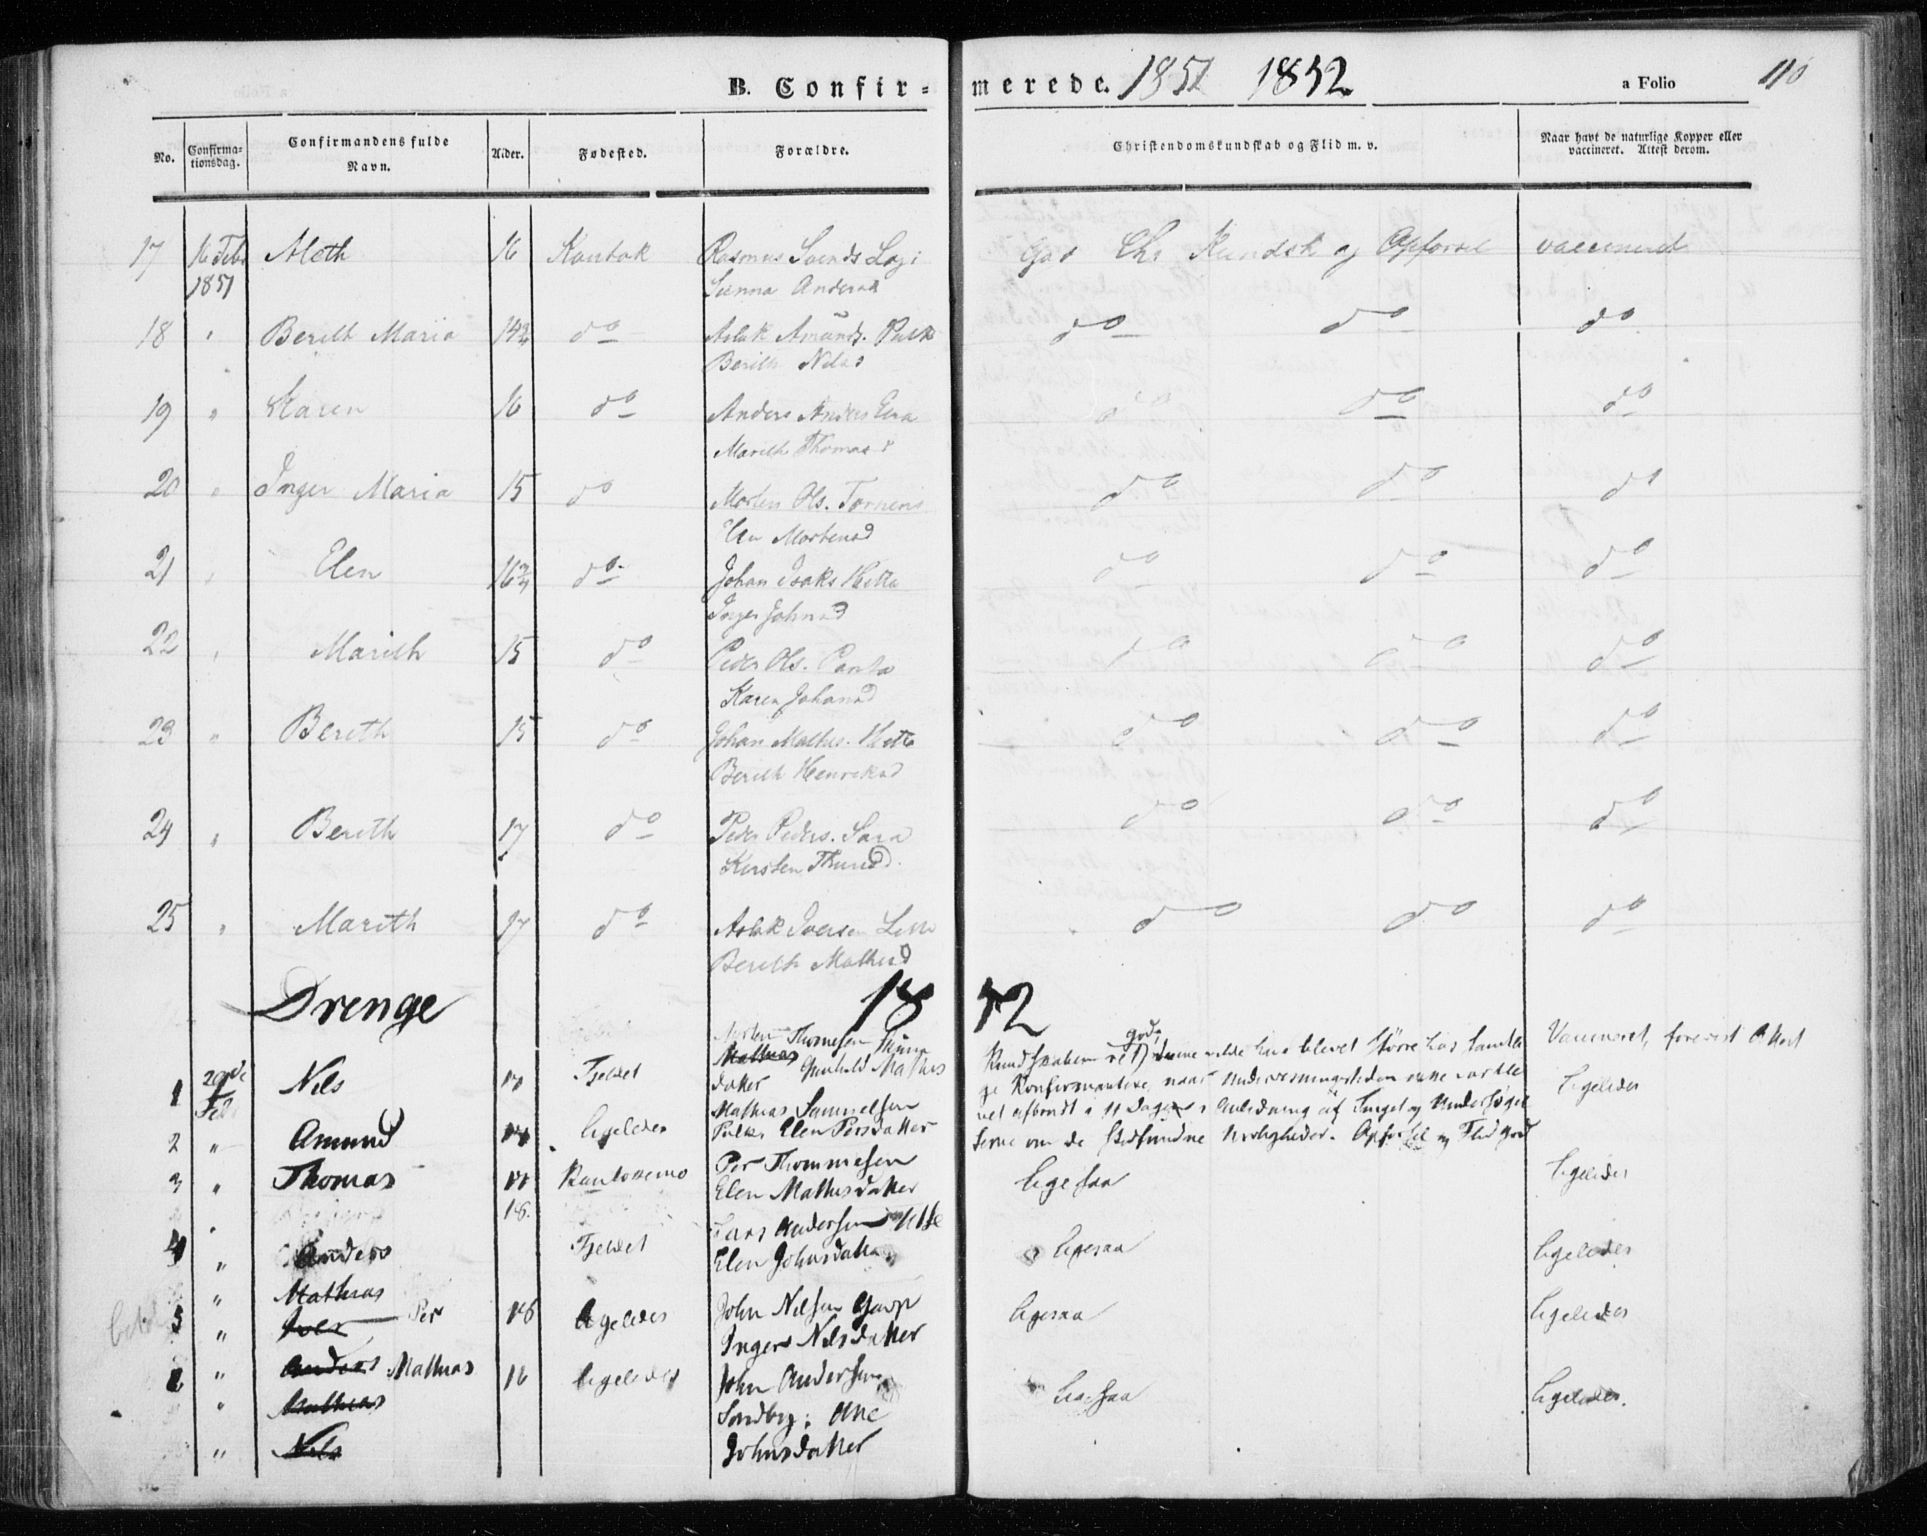 B. Confirmerede. 1851 1852 a Folio 110
No. Confirmationsdag. Confirmandens fulde Navn. Alder. Fødested. Forældre. Christendomskundskab og Flid m. v. Naar havt de naturlige Kopper eller vaccineret. Attest derom.
17 16 Feb. 1851 16 Kautok Rasmus Svends God Chr Kundsk og Opførsel vaccineret
Anders
18 " Berith Maria 14¾ do Aslak Amunds. do do do
Berith Nilsd
19 " Karen 16 do Anders Anders do do do
Marith Thomasd
20 " Inger Maria 15 do Morten Ols. do do do
Mortensd
21 " Elen 16¾ do Johan Isaks Hetta do do do
Inger Johnsd
22 " Marith 15 do Peder Ols. do do do
Karen Johansd
23 " Berith 15 do Johan Mathis. Hetta do do do
Berith Henriksd
24 " Berith 17 do Peder Peders. Sara do do do
Kirsten Thuresd.
25 " Marith 17 do Aslak Iversen do do do
Berith Mathisd
Drenge 1852
Morten Thomesen god; Vaccineret, forevist Attest
Mathias Gunhild Mathis Kundskaben ret denne vilde have blevet større hos samtli
1 20de Feb Nils 17 Fjeldet datter ge Konfirmantere, naar Underviisningstiden ikke var ble ligeledes
Mathias Samuelsen vet afbrudt i 11 Dage i Anledning af Tinget og Undersøgel
2 " Amund ligeledes Elen Persdatter serne om de stedfundne Uroligheder. Opførsel og Flid god
3 " Thomas 17 Kautokeino Per Thommesen ligesaa ligeledes
Elen Mathisdatter
18. Lars Andersen Utsi
4 " Anders Fjeldet Elen Johnsdatter ligesaa ligeledes
" Mathias
5 " Iver Per 16 ligeledes John Nilsen Gaup ligesaa ligeledes
Inger Nilsdatter
" Anders Mathias 16 ligeledes John Andersen ligesaa ligeledes.
" Mathias Ane
" Nils Johnsdatter